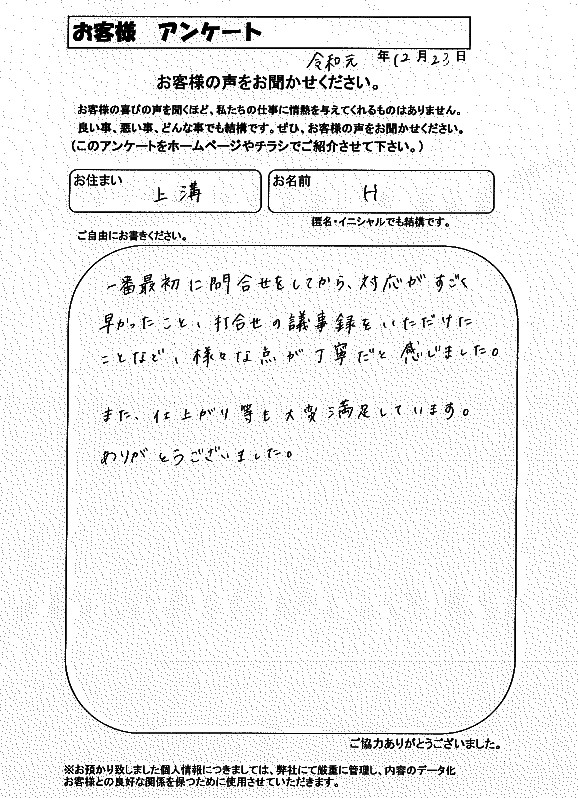 お客様 アンケート
令和元 年12月23日
お客様の声をお聞かせください。
お客様の喜びの声を聞くほど、私たちの仕事に情熱を与えてくれるものはありません。
良い事、悪い事、どんな事でも結構です。ぜひ、お客様の声をお聞かせください。
(このアンケートをホームページやチラシでご紹介させて下さい。)
お住まい 上溝
お名前 H
匿名・イニシャルでも結構です。
ご自由にお書きください。
一番最初に問合せをしてから、対応がすごく
早かったこと、打合せの議事録をいただけた
ことなど、様々な点が丁寧だと感じました。
また、仕上がり等も大変満足しています。
ありがとうございました。
ご協力ありがとうございました。
※お預かり致しました個人情報につきましては、弊社にて厳重に管理し、内容のデータ化
お客様との良好な関係を保つために使用させていただきます。